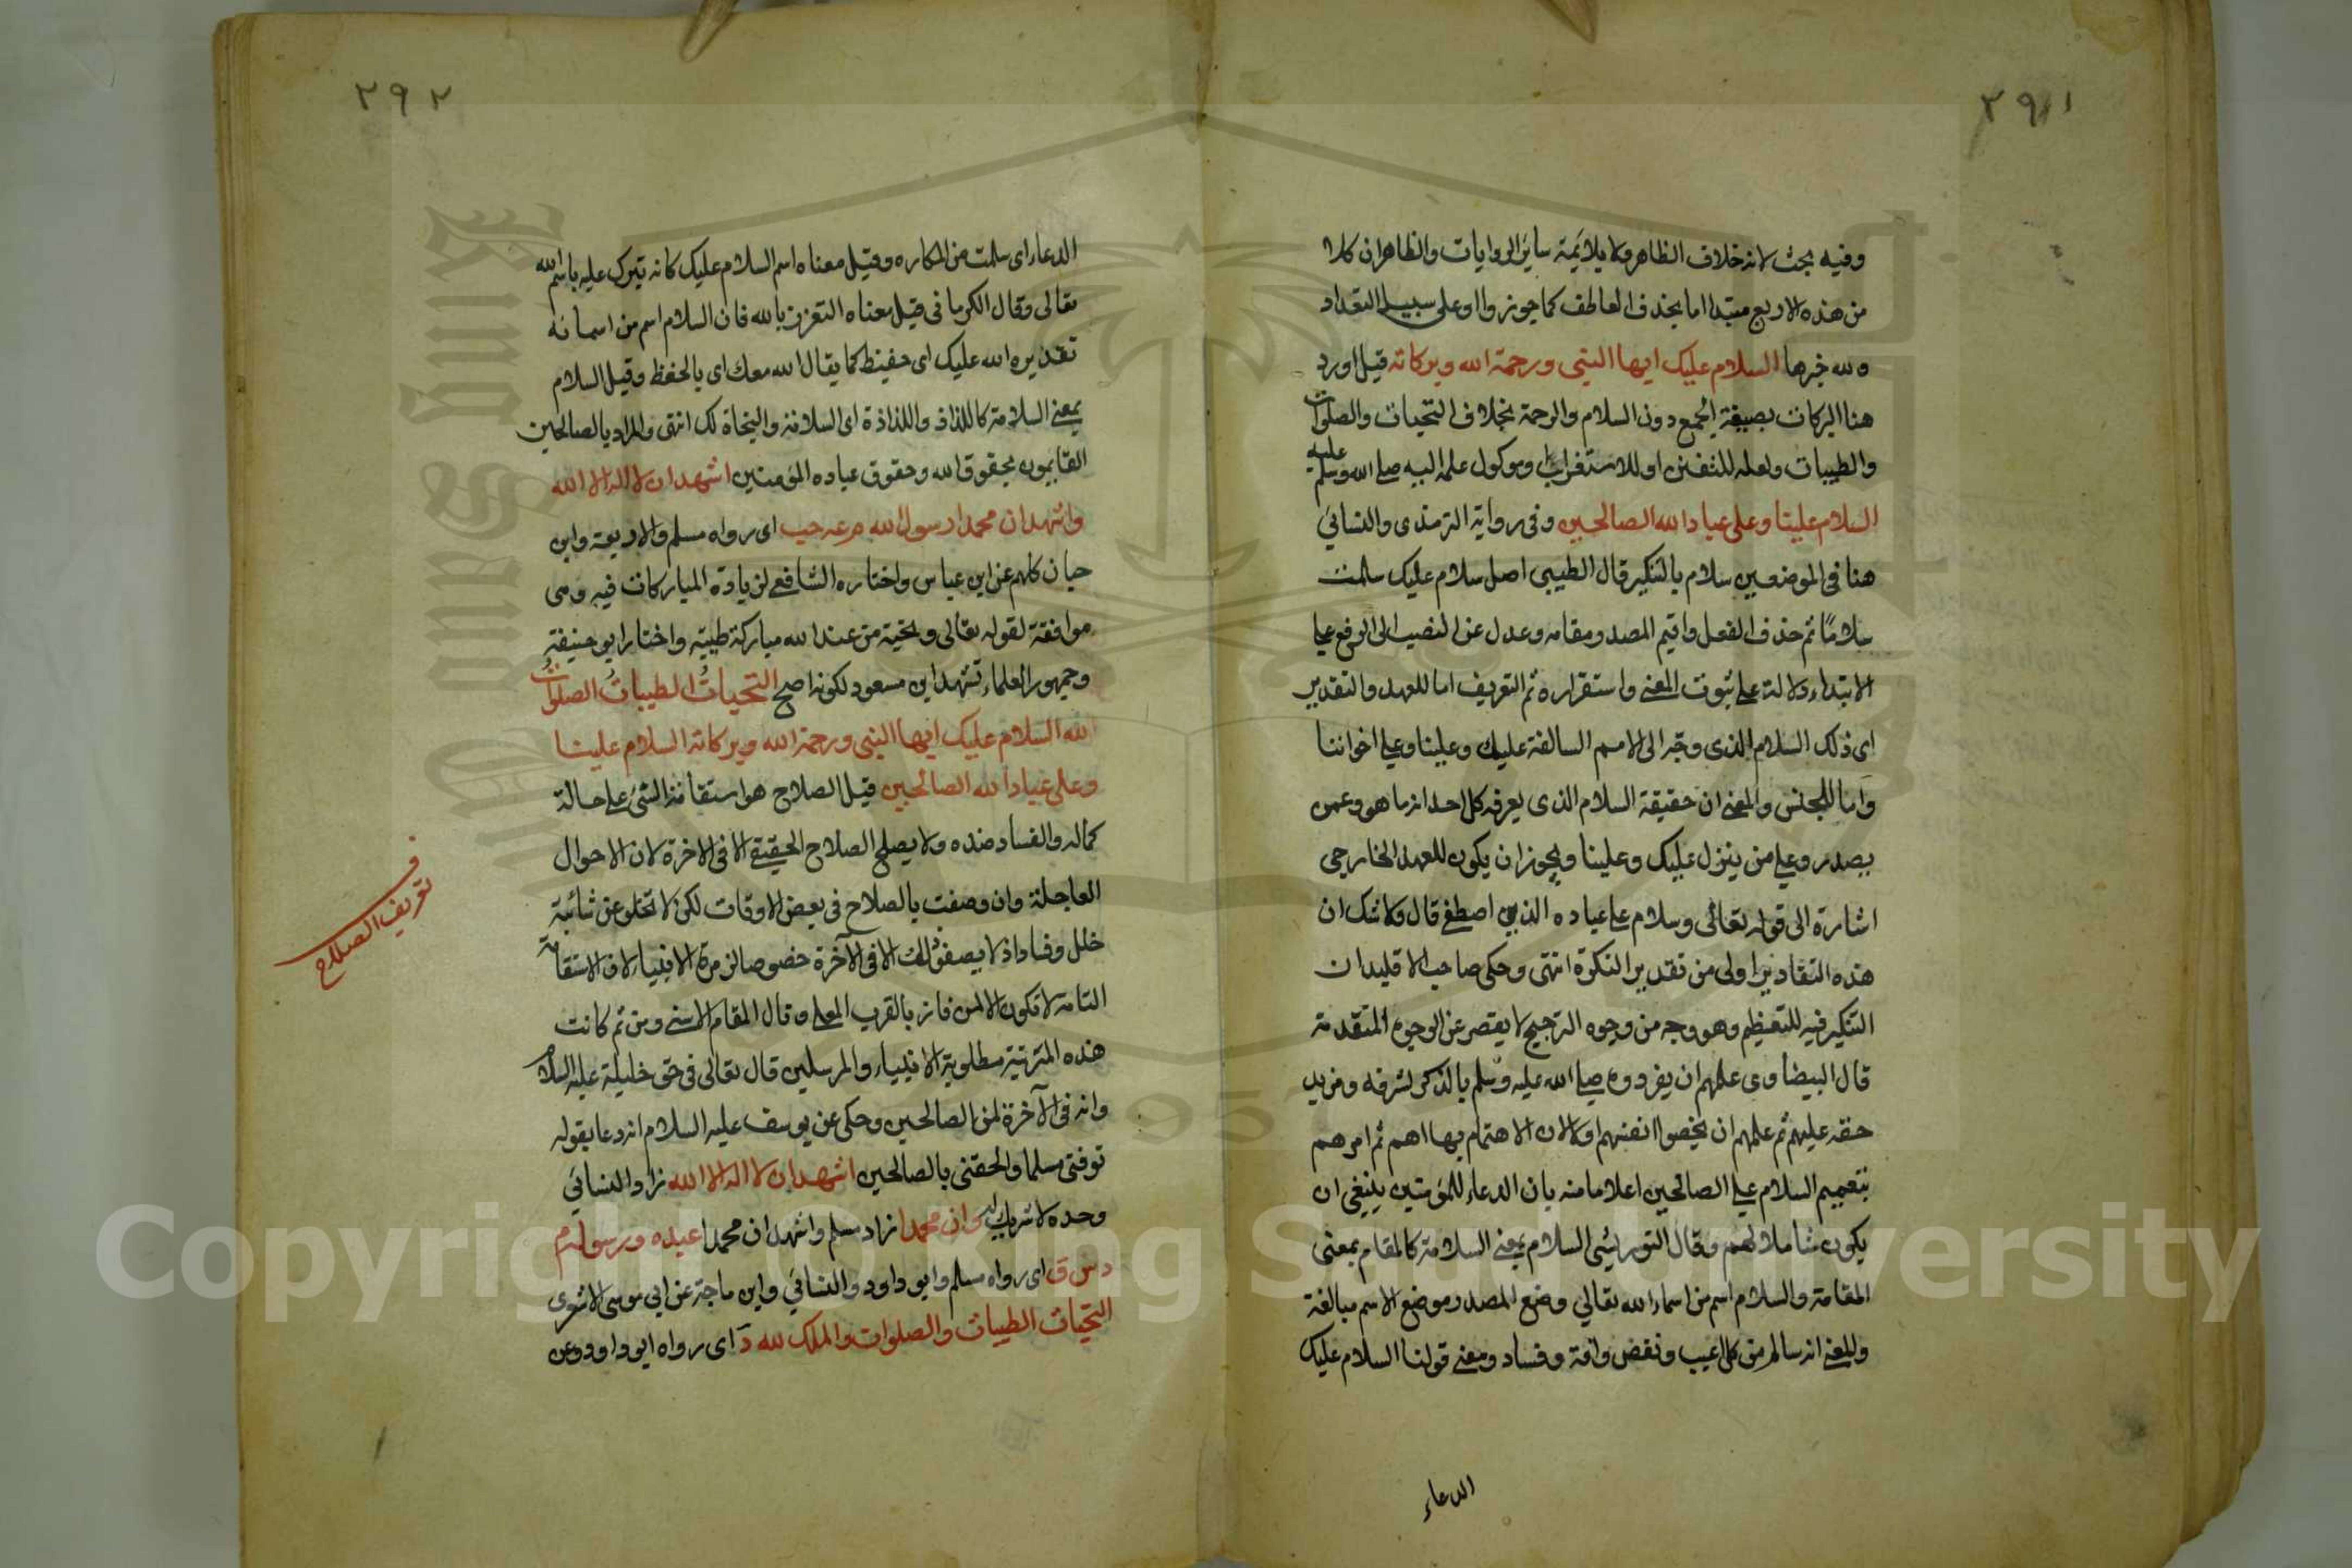 ٢٩١
وفيه بحث لانه خلاف الظاهر ولا يلائمه سائر الروايات والظاهر ان كلا
من هذه الاربع مبتدا اما بحذف العاطف كما جوزوا او على سبيل التعداد
ولله خبرها السلام عليك ايها النبي ورحمة الله وبركاته قيل اورد
هنا البركات بصيغة الجمع دون السلام والرحمة بخلاف التحيات والصلوات
والطيبات ولعله للتفنن او للاستغراب وموكول علمه اليه صلى الله عليه وسلم
السلام علينا وعلى عباد الله الصالحين وفى رواية الترمذى والنسائي
هنا فى الموضعين سلام بالتنكير قال الطيبى اصل سلام عليك سلمت
سلامًا ثم حذف الفعل واقيم المصدر مقامه وعدل عن النصب الى الرفع على
الابتداء دلالة على ثبوت المعنى واستقراره ثم التعريف اما للعهد والتقدير
اى ذلك السلام الذى وجّه الى الامم السالفة عليك وعلينا وعلى اخواننا
واما للجنس والمعنى ان حقيقة السلام الذى يعرفه كل احد انه ما هو وعمن
يصدر وعلى من ينزل عليك وعلينا ويجوز ان يكون للعهد الخارجى
اشارة الى قوله تعالى وسلام على عباده الذين اصطفى قال ولا شك ان
هذه التقادير اولى من تقدير النكرة انتهى وحكى صاحب الاقليد ان
التنكير فيه للتعظيم وهو وجه من وجوه الترجيح لا يقصر عن الوجوه المتقدمة
قال البيضاوى علمهم ان يفردوه صلى الله عليه وسلم بالذكر لشرفه ومزيد
حقه عليهم ثم علمهم ان يخصوا انفسهم اولا لان الاهتمام بها اهم ثم امرهم
بتعميم السلام على الصالحين اعلاما منه بان الدعاء للمؤمنين ينبغى ان
يكون شاملا لهم وقال التوربشتى السلام بمعنى السلامة كالمقام بمعنى
المقامة والسلام اسم من اسماء الله تعالى وضع المصدر موضع الاسم مبالغة
والمعنى انه سالم من كل عيب ونقض وافة وفساد ومعنى قولنا السلام عليك
الدعاء
٢٩٢
الدعاء اى سلمت من المكاره وقيل معناه اسم السلام عليك كانه تبرك عليه باسم الله
تعالى وقال الكرمانى قيل معناه التعزز بالله فان السلام اسم من اسمائه
تقديره الله عليك اى حفيظ كما يقال الله معك اى بالحفظ وقيل السلام
بمعنى السلامة كاللذاذ واللذاذة اى السلامة والنجاة لك انتهى والمراد بالصالحين
القايمون بحقوق الله وحقوق عباده المؤمنين اشهد ان لا اله الا الله
واشهد ان محمدا رسول الله م عه حب اى رواه مسلم والاربعة وابن
حبان كلهم عن ابن عباس واختاره الشافعى لزيادة المباركات فيه وهى
موافقة لقوله تعالى وتحية من عند الله مباركة طيبة واختار ابو حنيفة
وجمهور العلماء تشهد ابن مسعود لكونه اصح التحياتُ الطيباتُ الصلواتُ
لله السلام عليك ايها النبى ورحمة الله وبركاته السلام علينا
وعلى عباد الله الصالحين قيل الصلاح هو استقامة الشئ على حالة
كماله والفساد ضده ولا يصلح الصلاح الحقيقى الا فى الاخرة لان الاحوال
العاجلة وان وصفت بالصلاح فى بعض الاوقات لكن لا تخلو عن شائبة
خلل وفساد اذ لا يصفو ذلك الا فى الآخرة خصوصا لزمرة الانبياء لان الاستقامة
التامة لا تكون الا لمن فاز بالقرب المعلى وقال المقام الاسنى ومن ثم كانت
هذه المرتبة مطلوبة الانبياء والمرسلين قال تعالى فى حق خليله عليه السلام
وانه فى الآخرة لمن الصالحين وحكى عن يوسف عليه السلام انه دعا بقوله
توفنى مسلما والحقنى بالصالحين اشهد ان لا اله الا الله زاد النسائي
وحده لا شريك له وان محمدا زاد مسلم واشهد ان محمدا عبده ورسوله م
د س ق اى رواه مسلم وابو داود والنسائي وابن ماجة عن ابى موسى الاشعرى
التحيات الطيبات والصلوات والملك لله د اى رواه ابو داود وعن
ف
تعريف الصلاح
Copyright © King Saud University